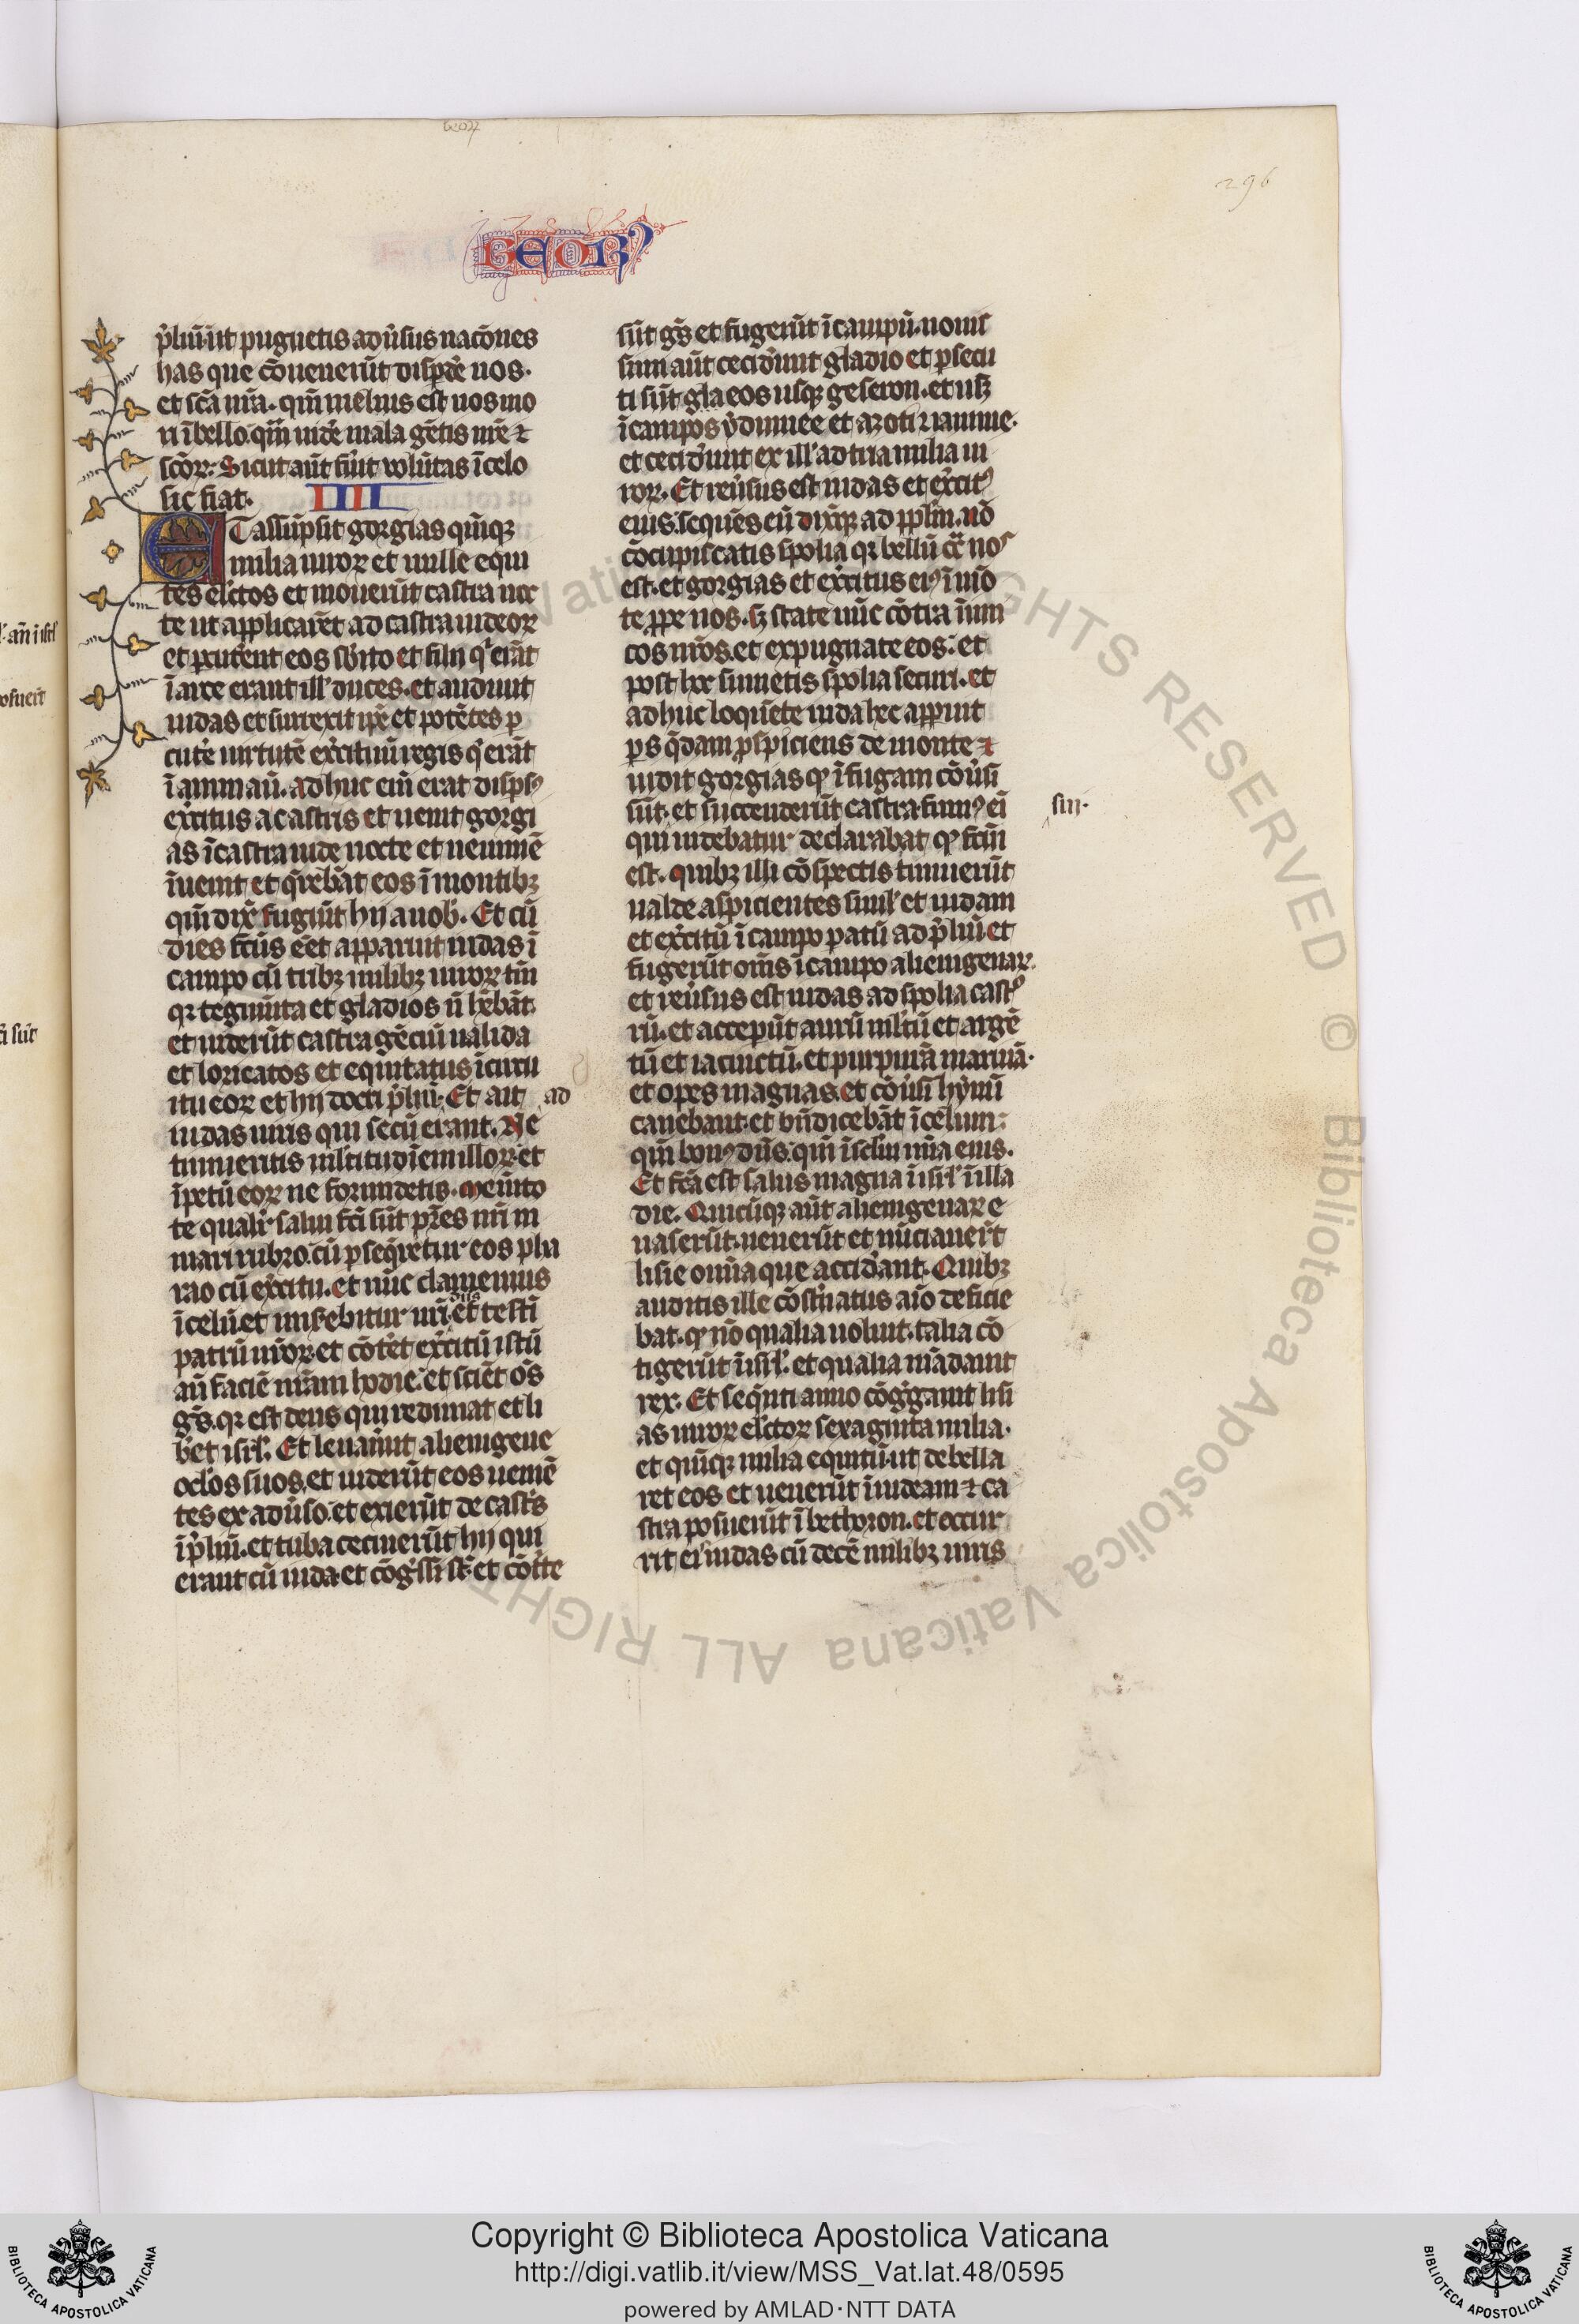 beoꝝ
296
BEOR
p̉lium ut pugnetis adūsus nac̄ones
has que cōuenerūt dispdē nos.
et sc̄a nr̄a. qm̄ melius est nos mo
ri ī bello. qm̄ uidē mala gētis nr̄e ⁊
sc̄oꝝ. Sicut aūt fūit uolūtas ī celo
sic fiat. IIII
ET assūpsit gorgias quīqꝫ
milia uiroꝝ et mille equi
tes elc̄tos et mouerūt castra noc
te ut applicarēt ad castra iudeoꝝ
et pcutēent eos sb̄ito et filij qͥ erāt
ī arce erant ill' duces. et audiuit
iudas et surrexit ip̄e et potētes p
cutē uirtutē ex̉cituū regis qͥ erāt
ī ammaū. adhuc em̄ erat dispsꝰ
ex̉citus a castris et uenit gorgi
as ī castra iude nocte et neminē
īuenit et q̄rebāt eos ī montibꝫ
qm̄ dix̄ fugiūt hij a nob'. Et cū
dies fc̄us ēet apparuit iudas ī
campo cū tribꝫ milibꝫ uiroꝝ tm̄
qꝛ tegmīta et gladios n̄ hēbāt
et uiderūt castra gēciū ualida
et loricatos et equitatus ī circu
itu eoꝝ et hij docti p̉lium. Et ait ad
iudas uiris qui secū erant. Ne
timueritis ml̄titudiēm illoꝝ. et
īpetū eoꝝ ne formidetis. Mem̄to
te qualit̉ salui fc̄i sūt pr̄es nr̄i in
mari rubro. cū pseq̄retur eos pha
rao cū ex̉citu. et nūc clamemus
ī celū. et mis̉ebitur nr̄i dn̄s et̄ testī
patrū nr̄oꝝ. et cōtēet ex̉citū istū
an̄ faciē nr̄am hodie. et sciēt oēs
gēs. qꝛ est deus qui redimat et li
bēet isrl'. Et leuaūnt alienigene
oc̄los suos. et uiderūt eos uenie̅
tes ex adūso. et exierūt de castis
ī p̉lium. et tuba cecinerūt hij qui
erant cū iuda. et cōgssi sūt. et cōtite
sūt gēs et fugerūt ī campū. nouis
simi aūt cecidūnt gladio et psecu
ti sūt gla eos usqꝫ geseron. et usqꝫ
ī campos ydumee et azoti ⁊ iamnie.
et cecidūnt ex ill' ad tria milia ui
roꝝ. Et reūsus est iudas et ex̉citꝰ
eius. sequēs eū dixitqꝫ ad pplm̄. nō
cōcupiscatis spolia qꝛ bellū cō̄ nos
est. et gorgias et ex̉citus eiꝰ ī mō
te ppe nos. sꝫ state nūc cōtra inim
cos nr̄os. et expugnate eos. et
post hec sumetis spolia securi. et
adhuc loquēte iuda hec appuit
ps q̄dam pspiciens de monte ⁊
uidit gorgias qꝫ ī fugam cōūsi
sūt. et succenderūt castra. fumꝰ ei
sui.
qui uidebatur declarabat qꝫ fc̄m
est. quibꝫ illi cōspectis timuerūt
ualde. aspicientes siml' et iudam
et ex̉citū ī campo patū ad p̉lium et
fugerūt om̄s ī campo alienigenaꝝ.
et reūsus est iudas ad spolia castͦ
rū. et accepūt aurū ml̄tū et argē
tū et iacinctū. et purpurā marinā.
et opes magnas. et cōūsi hymū
canebant. et bn̄dicebāt ī celum:
qm̄ bonꝰ dn̄s. qm̄ ī sclm̄ mīa eius.
Et fc̄a est salus magna ī isrl' ī illa
die. Quicūqꝫ aūt alienigenaꝝ e
uaserūt. uenerūt et nūciauerūt
lisie omīa que acciderant. Quibꝫ
auditis ille cōstnatus aīo deficie
bat. qꝫ nō qualia uoluit. talia cō
tigerūt ī isrl'. et qualia mādauit
rex. Et seqūti anno cōggauit lisi
as uiroꝝ elc̄toꝝ sexaginta milia.
et quīqꝫ milia equitū. ut debella
ret eos et uenerūt ī iudeam ⁊ ca
stra posuerūt ī bethoron. et occur
rit ei iudas cū decē milibꝫ uiris
Copyright © Biblioteca Apostolica Vaticana
http://digi.vatlib.it/view/MSS_Vat.lat.48/0595
powered by AMLAD·NTT DATA
BIBLIOTECA APOSTOLICA VATICANA
BIBLIOTECA APOSTOLICA VATICANA
© Biblioteca Apostolica Vaticana ALL RIGHTS RESERVED